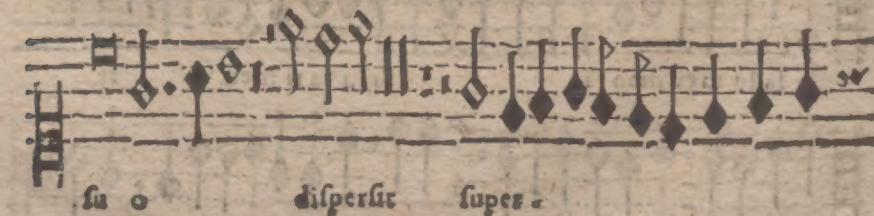 ſu o diſperſit ſuper-